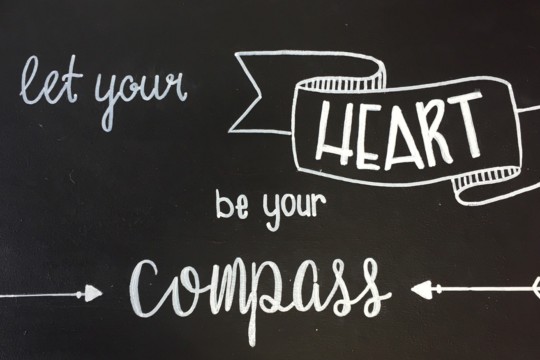 let your HEART
be your
compass